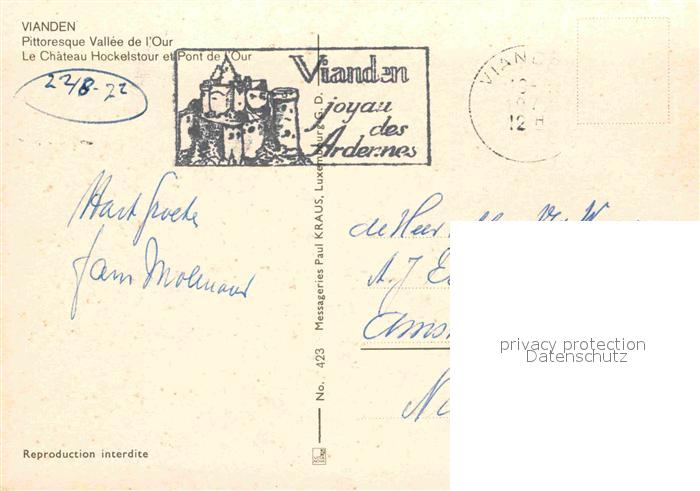 VIANDEN
Pittoresque Vallée de l'Our
Le Château Hockelstour et Pont de l'Our
22/8-72
Vianden
joyau
des
Ardennes
VIAN
12 H
Hart. Groete
fam Molenaar
de Heer
A.J
Ams
N
Messageries Paul KRAUS, Luxembourg G. D.
No. 423
Reproduction interdite
privacy protection
Datenschutz